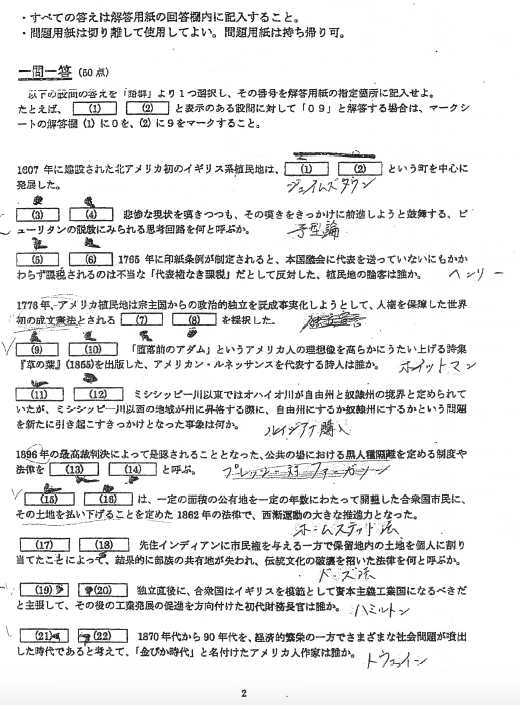 ・すべての答えは解答用紙の回答欄内に記入すること。
・問題用紙は切り離して使用してよい。問題用紙は持ち帰り可。
一問一答（50 点）
以下の設問の答えを「語群」より１つ選択し、その番号を解答用紙の指定箇所に記入せよ。
たとえば、 (1) (2) と表示のある設問に対して「０９」と解答する場合は、マークシ
ートの解答欄 (1) に０を、(2) に９をマークすること。
1607 年に建設された北アメリカ初のイギリス系植民地は、 (1) (2) という町を中心に
発展した。
ジェイムズタウン
(3) (4) 悲惨な現状を嘆きつつも、その嘆きをきっかけに前進しようと鼓舞する、ピ
ューリタンの説教にみられる思考回路を何と呼ぶか。
予型論
(5) (6) 1765 年に印紙条例が制定されると、本国議会に代表を送っていないにもかか
わらず課税されるのは不当な「代表権なき課税」だとして反対した、植民地の論客は誰か。
ヘンリー
1776 年、アメリカ植民地は宗主国からの政治的独立を既成事実化しようとして、人権を保障した世界
初の成文憲法とされる (7) (8) を採択した。
(9) (10) 「堕落前のアダム」というアメリカ人の理想像を高らかにうたい上げる詩集
『草の葉』(1855)を出版した、アメリカン・ルネッサンスを代表する詩人は誰か。
ホイットマン
(11) (12) ミシシッピー川以東ではオハイオ川が自由州と奴隷州の境界と定められて
いたが、ミシシッピー川以西の地域が州に昇格する際に、自由州にするか奴隷州にするかという問題
を新たに引き起こすきっかけとなった事象は何か。
ルイジアナ購入
1896 年の最高裁判決によって是認されることとなった、公共の場における黒人種隔離を定める制度や
法律を (13) (14) と呼ぶ。
プレッシー対ファーガソン
(15) (16) は、一定の面積の公有地を一定の年数にわたって開墾した合衆国市民に、
その土地を払い下げることを定めた 1862 年の法律で、西漸運動の大きな推進力となった。
ホームステッド法
(17) (18) 先住インディアンに市民権を与える一方で保留地内の土地を個人に割り
当てたことによって、結果的に部族の共有地が失われ、伝統文化の破壊を招いた法律を何と呼ぶか。
ドーズ法
(19) (20) 独立直後に、合衆国はイギリスを模範として資本主義工業国になるべきだ
と主張して、その後の工業発展の促進を方向付けた初代財務長官は誰か。
ハミルトン
(21) (22) 1870 年代から 90 年代を、経済的繁栄の一方でさまざまな社会問題が噴出
した時代であると考えて、「金ぴか時代」と名付けたアメリカ人作家は誰か。
トウェイン
2